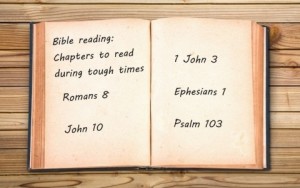 Bible reading:
Chapters to read
during tough times
Romans 8
John 10
1 John 3
Ephesians 1
Psalm 103